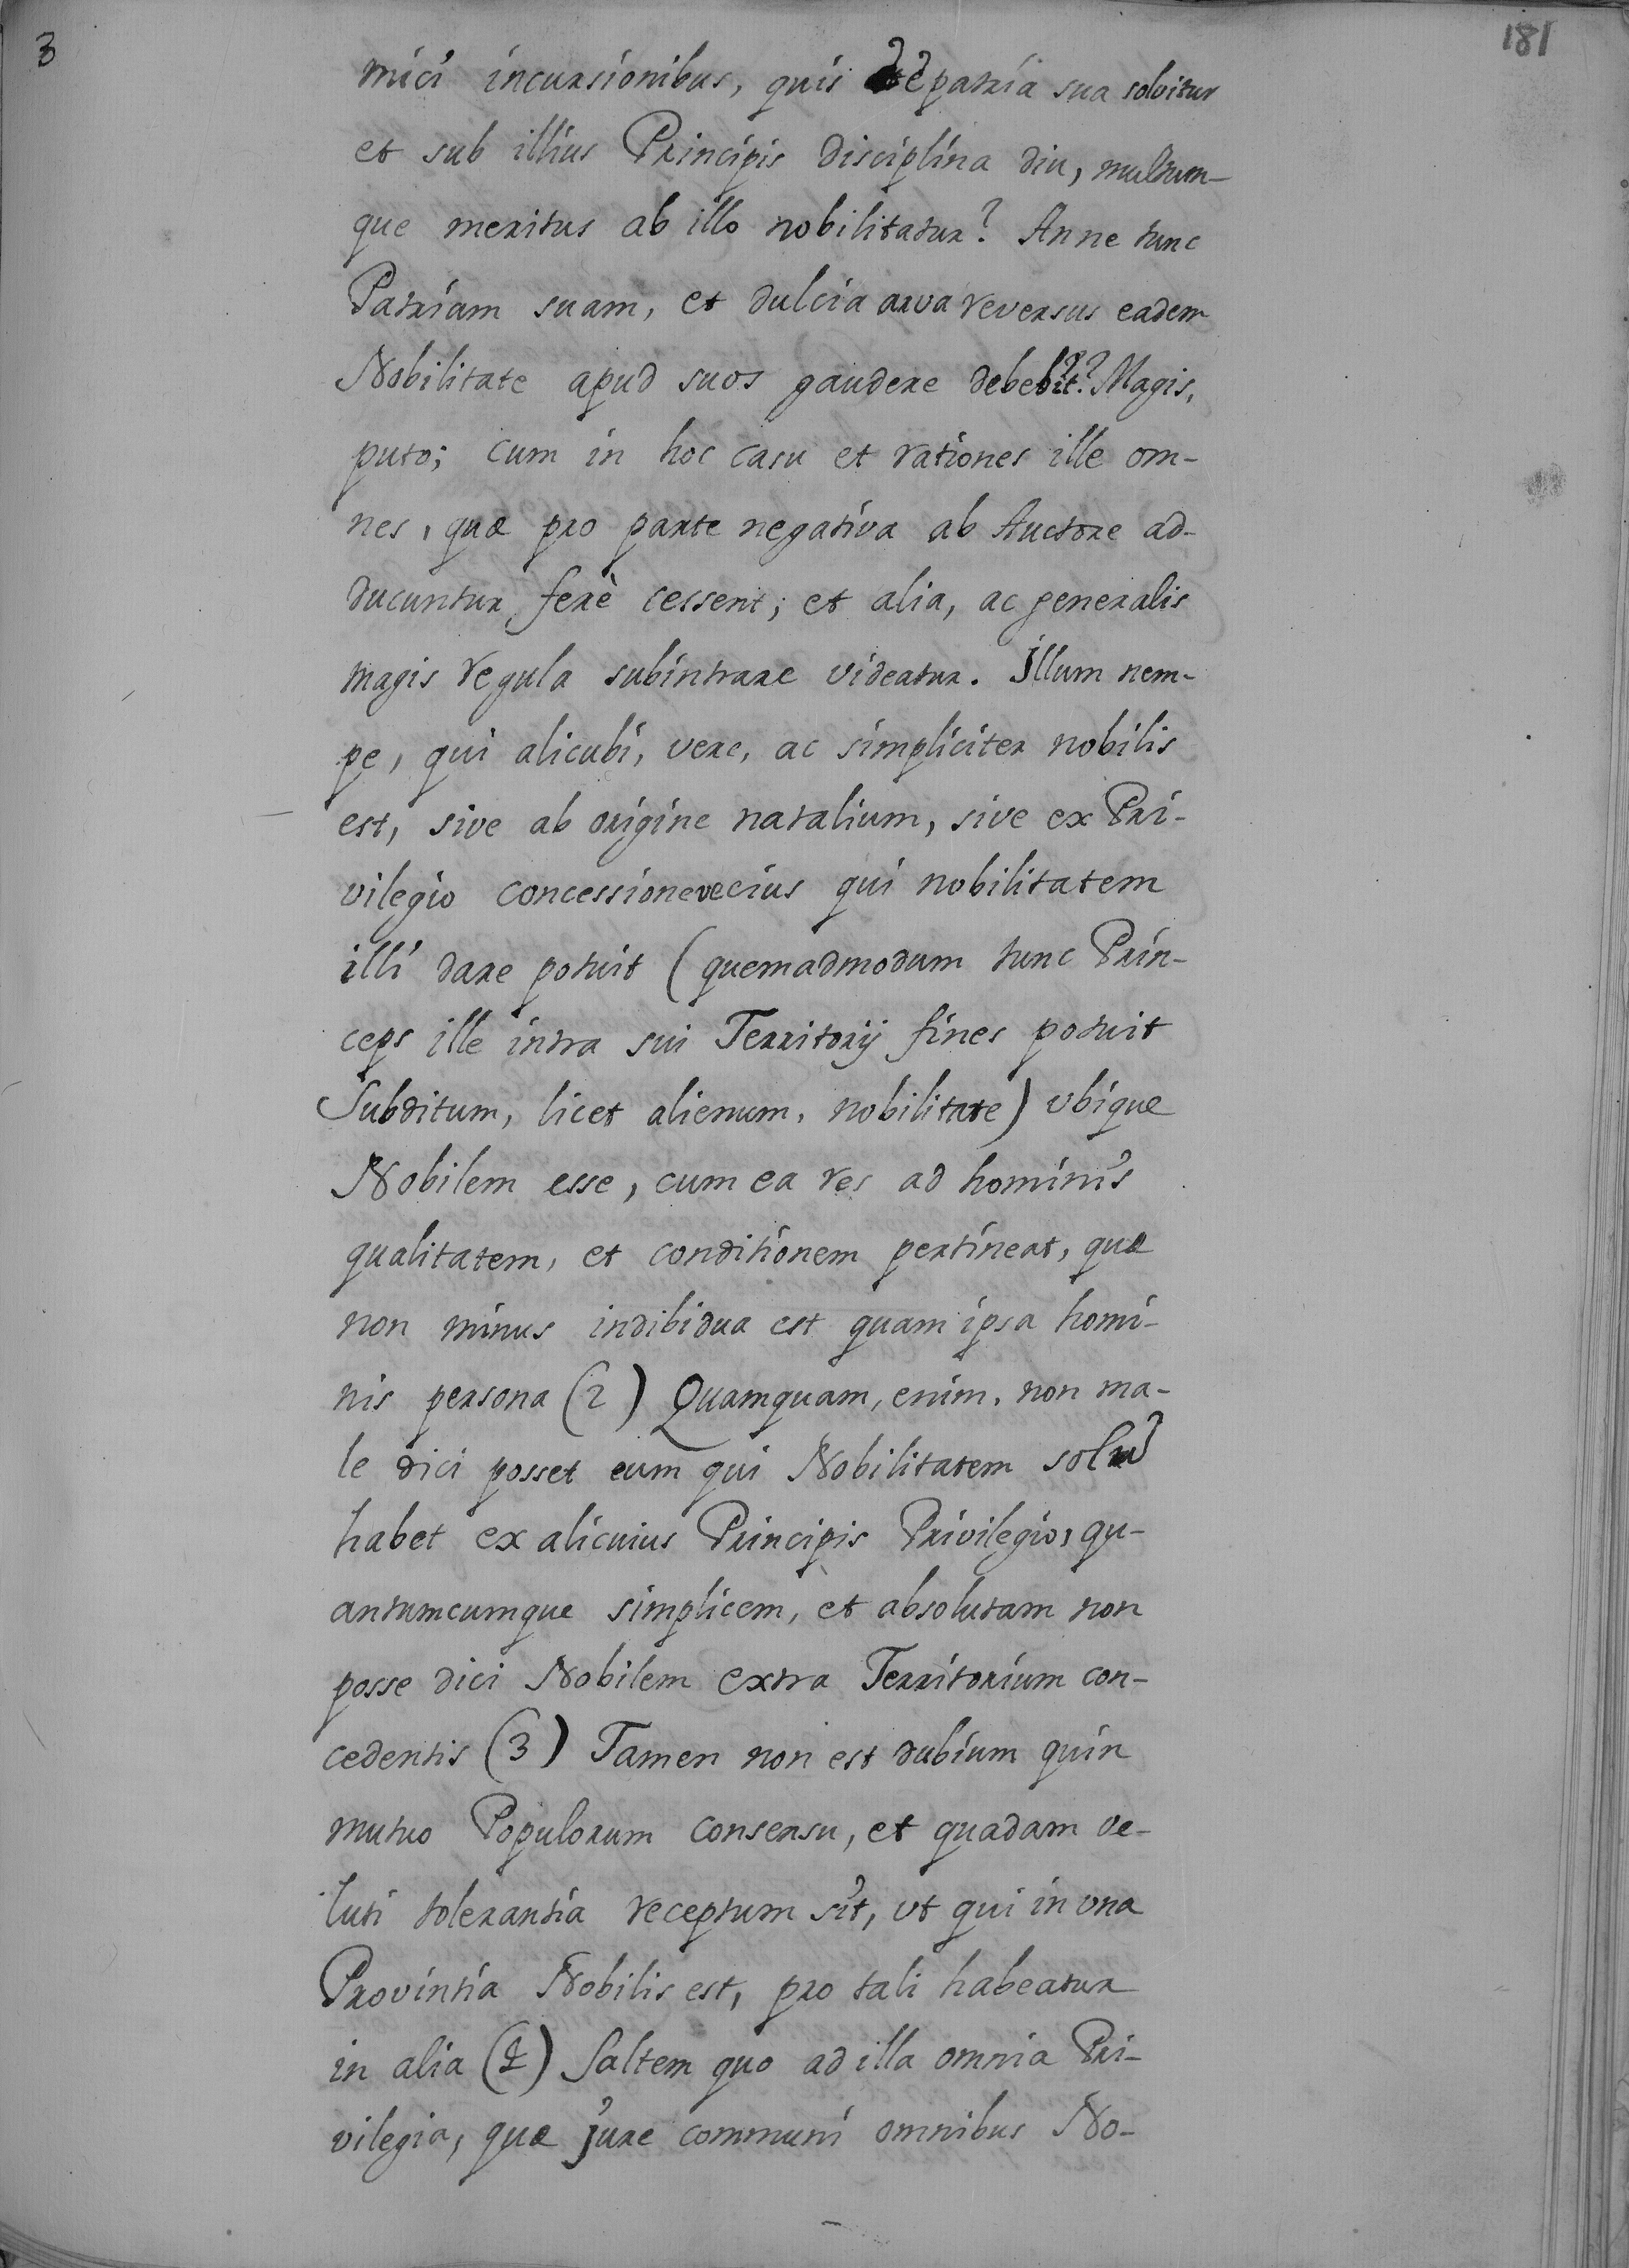 3
181
mici incursionibus, quis de patria sua solvitur
et sub illius Principis disciplina diu, multum-
que meritus ab illo nobilitatur? Anne tunc
Patriam suam, et dulcia arva reversus eadem
Nobilitate apud suos gaudere debebit? Magis,
puto; cum in hoc casu et rationes ille om-
nes, quæ pro parte negativa ab Auctore ad-
ducuntur ferè cessent; et alia, ac generalis
magis regula subintrare videatur. Illum nem-
pe, qui alicubi, vere, ac simpliciter nobilis
est, sive ab origine natalium, sive ex Pri-
vilegio concessioneve eius qui nobilitatem
illi dare potuit (quemadmodum tunc Prin-
ceps ille intra sui Territorij fines potuit
Subditum, licet alienum, nobilitate) vbique
Nobilem esse, cum ea res ad hominis
qualitatem, et conditionem pertineat, quæ
non minus indibidua est quam ipsa homi-
nis persona (2) Quamquam, enim, non ma-
le dici posset eum qui Nobilitatem solũ
habet ex alicuius Principis Privilegio, qu-
antumcumque simplicem, et absolutam non
posse dici Nobilem extra Territorium con-
cedentis (3) Tamen non est dubium quin
mutuo Populorum consensu, et quadam ve-
luti tolerantia receptum sit, vt qui in vna
Provintia Nobilis est, pro tali habeatur
in alia (4) Saltem quo ad illa omnia Pri-
vilegia, quæ jure communi omnibus No-